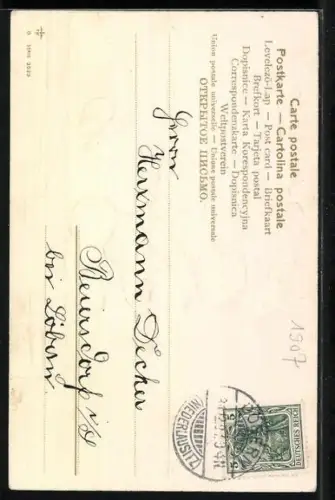 Carte postale
Postkarte — Cartolina postale
Levelező-Lap — Post card — Briefkaart
Brefkort — Tarjeta postal
Dopisnice — Karta Korespondencyjna
Correspondenzkarte — Dopisnica
Weltpostverein
Union postale universelle — Unione postale universale
ОТКРЫТОЕ ПИСЬМО.
1907
DEUTSCHES REICH
5 5
DOBERN
NIEDERLAUSITZ
Herrn
Herrmann Decker
Beiersdorf i/S
bei Löbau